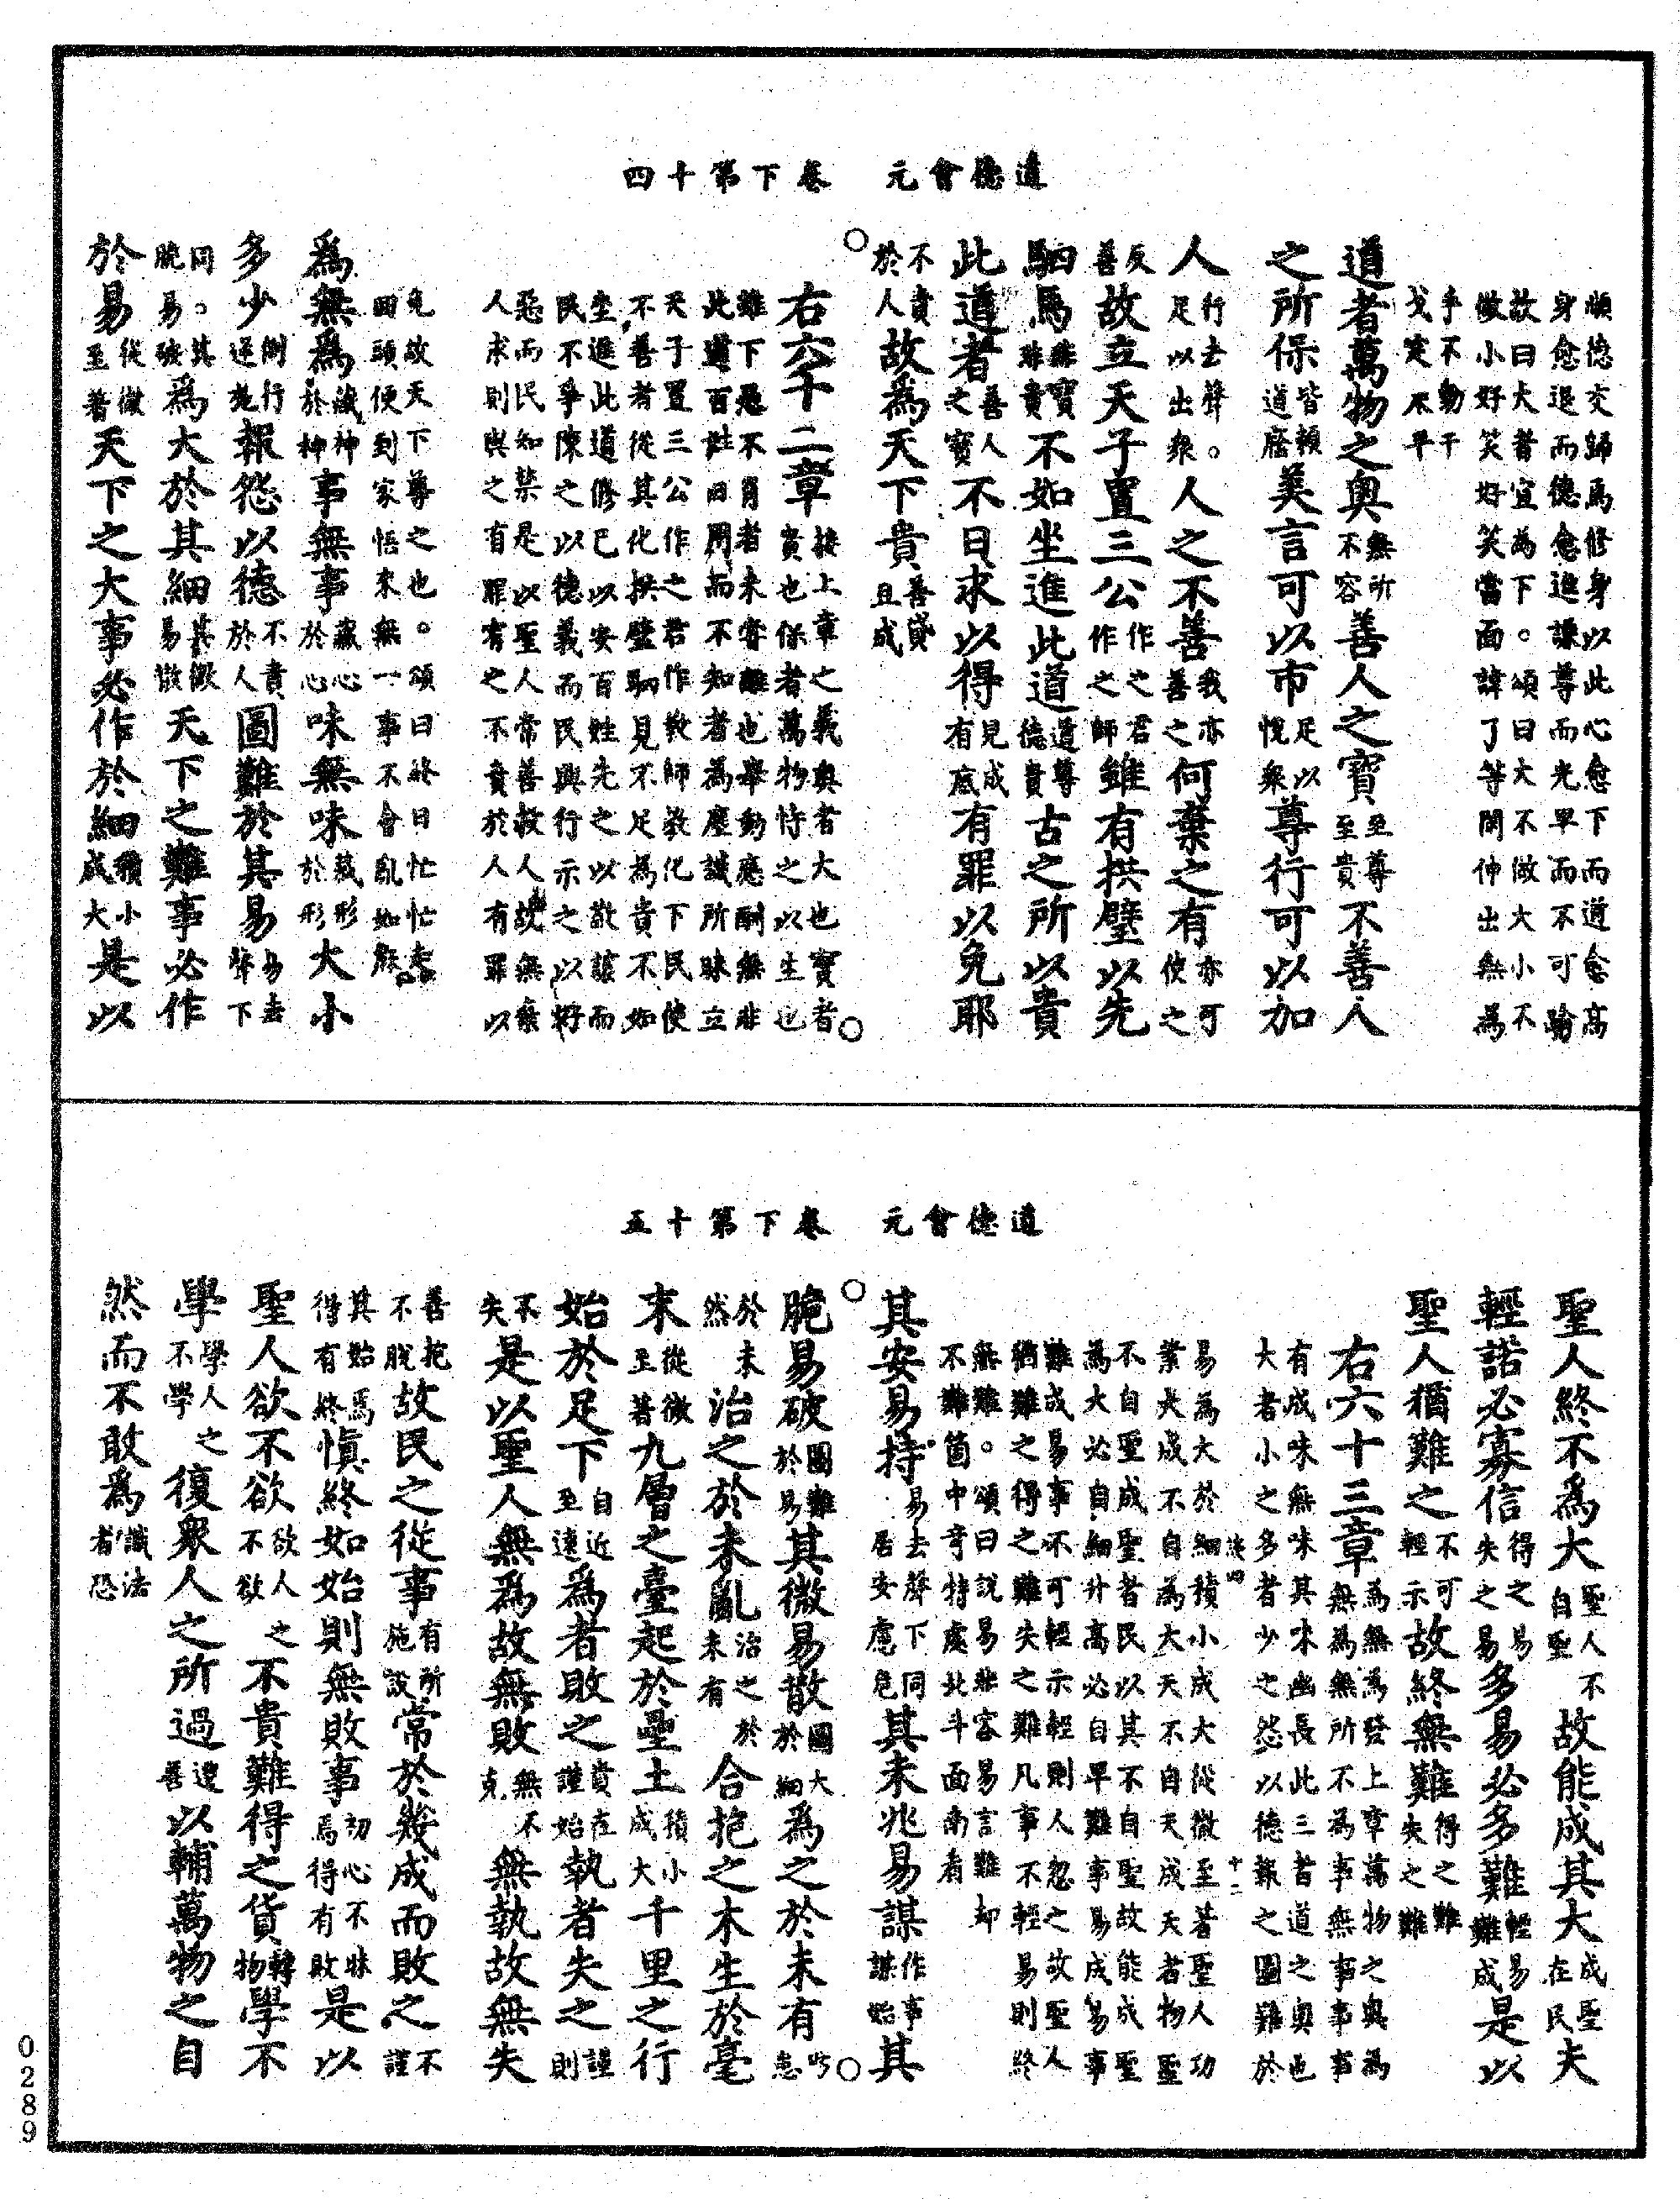 道德會元　卷下第十四
順德交歸為修身以此心愈下而道愈高
身愈退而德愈進謙尊而光卑而不可踰
故曰大者宜為下。頌曰大不做大小不
做小好笑好笑當面諱了等閑伸出無為
手不動干
戈定太平
道者萬物之奧無所不容善人之寶至尊至貴不善人
之所保皆賴道廕美言可以市足以悅眾尊行可以加
人行去聲。足以出眾人之不善我亦善之何棄之有亦可使之
反善故立天子置三公作之君作之師雖有拱璧以先
駟馬非寶非貴不如坐進此道道尊德貴古之所以貴
此道者善人之寶不曰求以得見成有底有罪以免耶
不責於人故為天下貴善貸且成
○右六十二章接上章之義奧者大也寶者貴也保者萬物恃之以生也○
雖下愚不肖者未嘗離也舉動應酬無非
此道百姓日用而不知者為塵識所昧立
天子置三公作之君作教師教化下民使
不善者從其化拱璧駟見不足為貴不如
坐進此道修已以安百姓先之以敬讓而
民不爭陳之以德義而民興行示之以好
惡而民知禁是以聖人常善救人故無棄
人求則與之有罪宥之不責於人人有罪以
免故天下尊之也。頌曰終日忙忙走
回頭便到家悟來無一事不會亂如麻
為無為藏神於神事無事藏心於心味無味藏形於形大小
多少倒行逆施報怨以德不責於人圖難於其易易去聲下
同。其脆易破為大於其細其微易散天下之難事必作
於易從微至著天下之大事必作於細積小成大是以
道德會元　卷下第十五
聖人終不為大聖人不自聖故能成其大成聖在民夫
輕諾必寡信得之易失之易多易必多難輕易難成是以
聖人猶難之不可輕示故終無難得之難失之難
右六十三章為無為發上章萬物之奧為無為無所不為事無事事事
有成味無味其味幽長此三者道之奧也
大者小之多者少之怨以德報之圖難於
易為大於細積小成大從微至著聖人功
業大成不自為大天不自天成天者物聖
不自聖成聖者民以其不自聖故能成聖
為大必自細升高必自卑難事易成易事
難成易事不可輕示輕則人忽之故聖人
猶難之得之難失之難凡事不輕易則終
無難。頌曰說易非容易言難却
不難箇中奇特處北斗面南看
○其安易持易去聲下同居安慮危其未兆易謀作事謀始其○
脆易破圖難於易其微易散圖大於細為之於未有防患
於未然治之於未亂治之於未有合抱之木生於毫
末從微至著九層之臺起於壘土積小成大千里之行
始於足下自近至遠為者敗之貴在謹始執者失之謹則
不失是以聖人無為故無敗無不克無執故無失
善抱不脫故民之從事有所施設常於幾成而敗之不謹
其始焉得有終慎終如始則無敗事初心不昧焉得有敗是以
聖人欲不欲欲人之不欲不貴難得之貨轉物學不
學學人之不學復眾人之所過遷善以輔萬物之自
然而不敢為識法者恐
0289